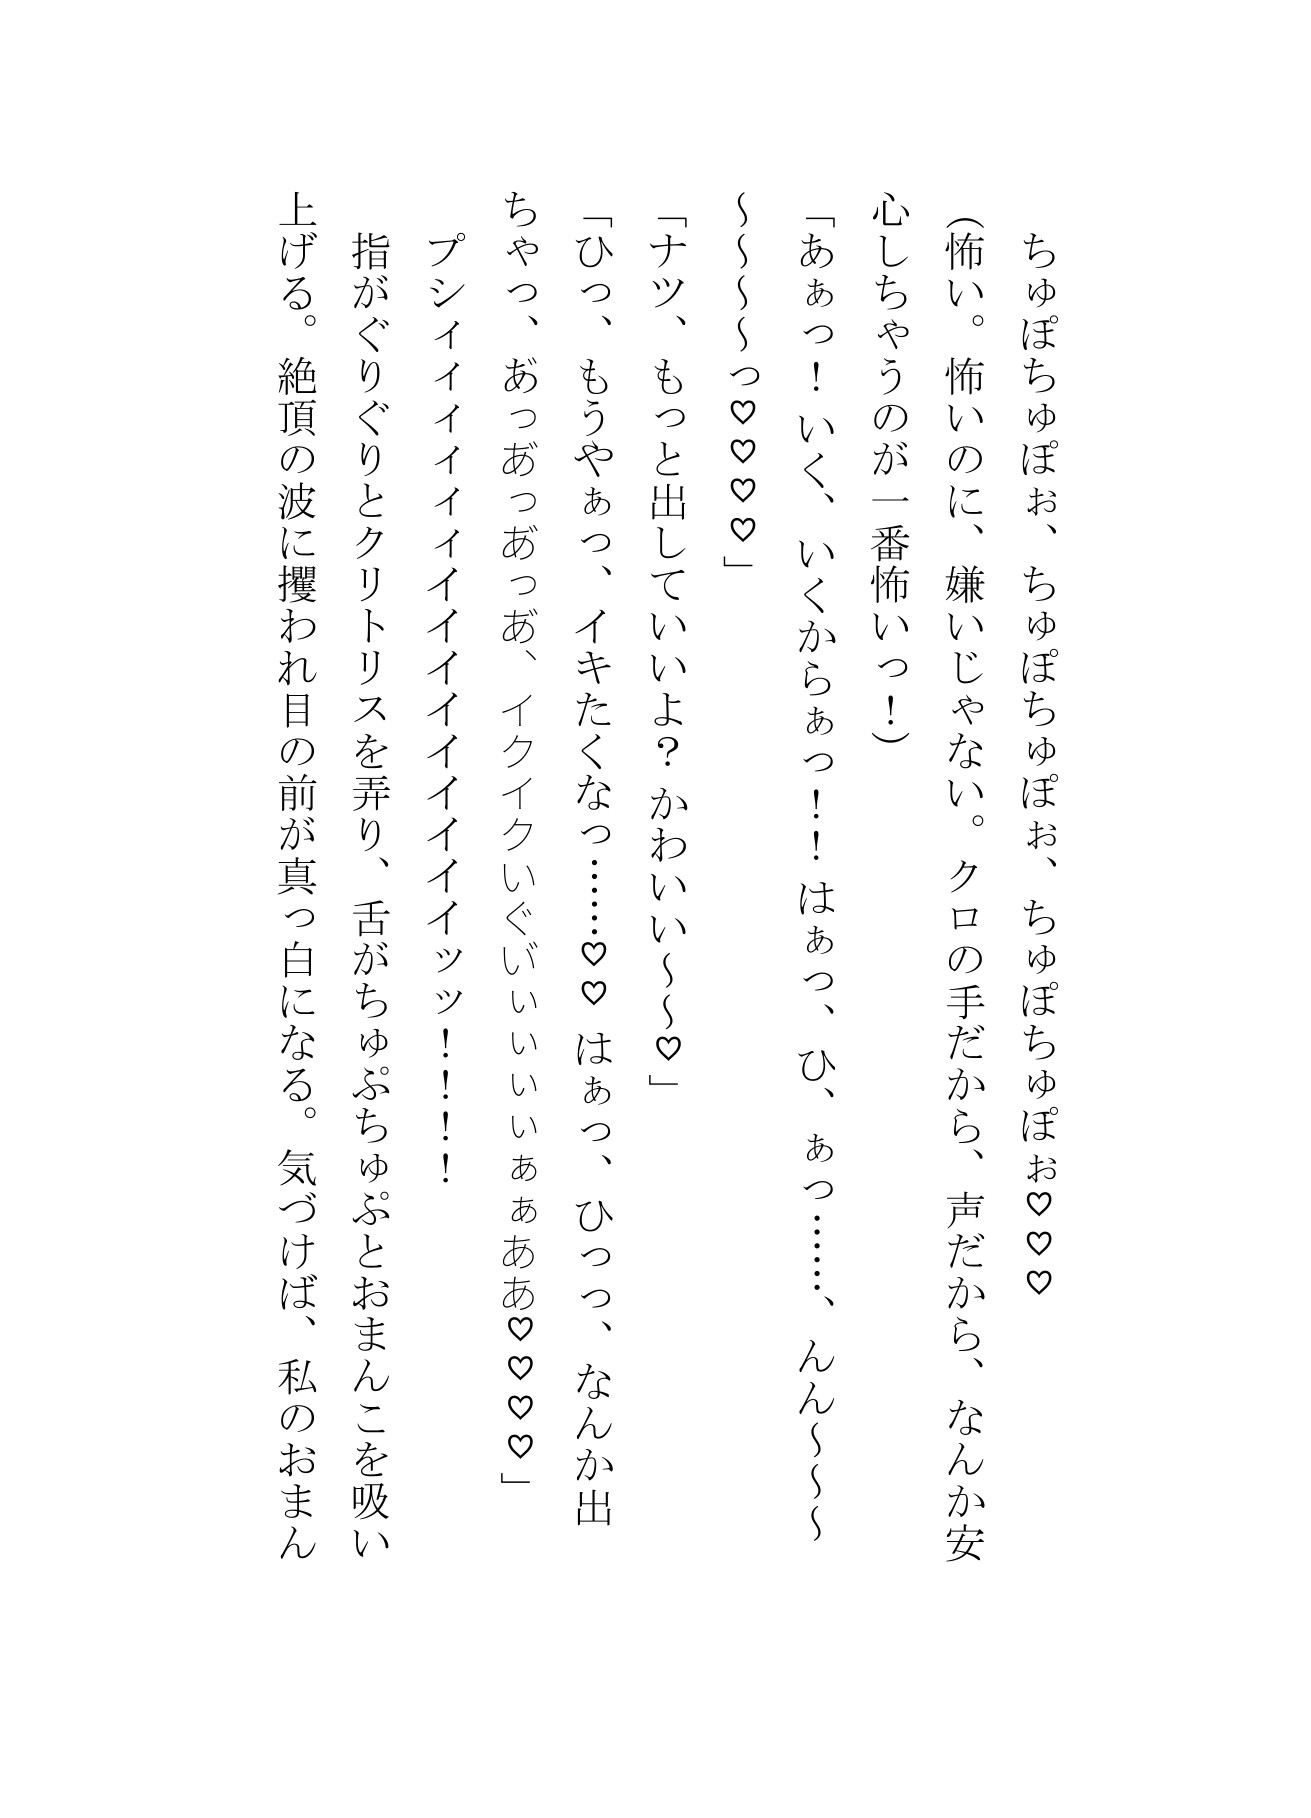 ちゅぽちゅぽぉ、ちゅぽちゅぽぉ、ちゅぽちゅぽぉ♡♡♡
(怖い。怖いのに、嫌いじゃない。クロの手だから、声だから、なんか安
心しちゃうのが一番怖いっ！)
「あぁっ！いく、いくからぁっ！！はぁっ、ひ、ぁっ……、んん～～～
～～～～っ♡♡♡♡」
「ナツ、もっと出していいよ？かわいい～～♡」
「ひっ、もうやぁっ、イキたくなっ……♡♡ はぁっ、ひっっ、なんか出
ちゃっ、あ゙っあ゙っあ゙っあ゙、イクイクいぐい゙ぃぃぃぃぁぁああ♡♡♡♡」
プシィィィィィィイイイイイイイイイッッ！！！！
指がぐりぐりとクリトリスを弄り、舌がちゅぷちゅぷとおまんこを吸い
上げる。絶頂の波に攫われ目の前が真っ白になる。気づけば、私のおまん